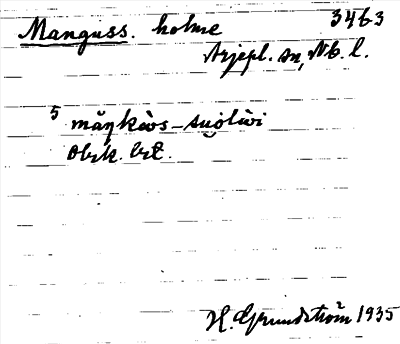 Manguss. holme 3463
Arjepl. sn, Nb. l.
5 måŋkàos-suolùi
Obek. bet.
H. Grundström 1935